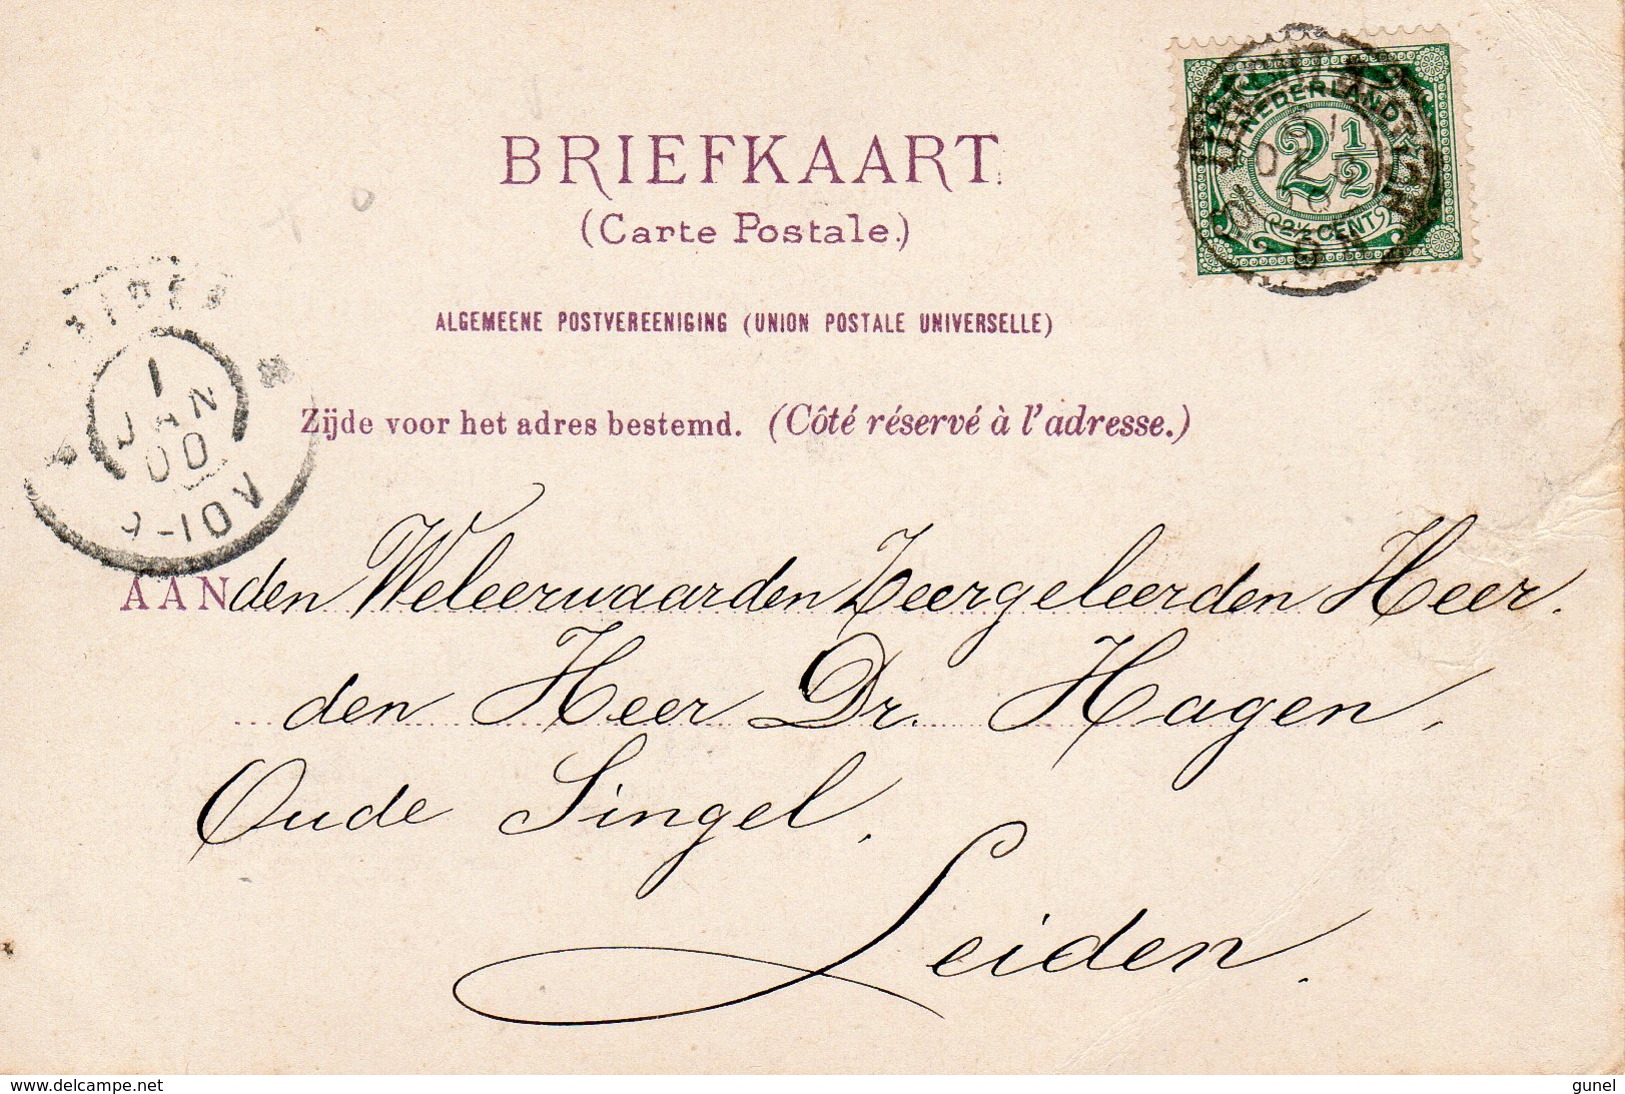 BRIEFKAART.
(Carte Postale.)
NEDERLAND
2½
2½ CENT
ALGEMEENE POSTVEREENIGING (UNION POSTALE UNIVERSELLE)
1
JAN
00
Zijde voor het adres bestemd. (Côté réservé à l'adresse.)
AAN den Weleerwaarden Zeergeleerden Heer.
den Heer Dr. Hagen,
Oude Singel.
Leiden.
www.delcampe.net
gunel